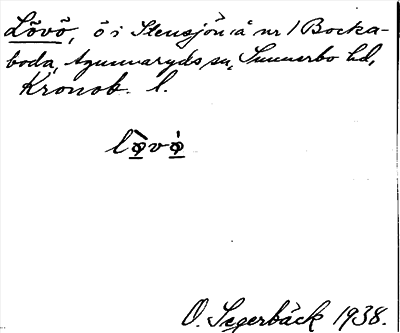 Lövö, ö i Stensjön å nr 1 Bocka-
boda, Agunnaryds sn, Sunnerbo hd,
Kronob. l.
lo̱̊vo̱̊
O. Segerbäck 1938.